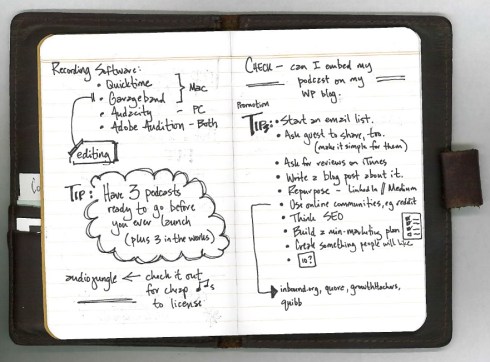 Recording Software:
• Quicktime
• Garageband
Mac
• Audacity - PC
• Adobe Audition - Both
editing
TIP: Have 3 podcasts
ready to go before
you ever launch
(plus 3 in the works)
audiojungle ← check it out
for cheap ♪♫s
to license
CHECK - can I embed my
podcast on my
WP blog.
Promotion
TIPS: • Start an email list.
• Ask guest to share, too.
(make it simple for them)
• Ask for reviews on iTunes
• Write a blog post about it.
• Repurpose - LinkedIn / Medium
• Use online communities, eg reddit
• Think SEO
• Build a mini-marketing plan
• Create something people will like
• 10?
inbound.org, quora, growthhackers,
quibb